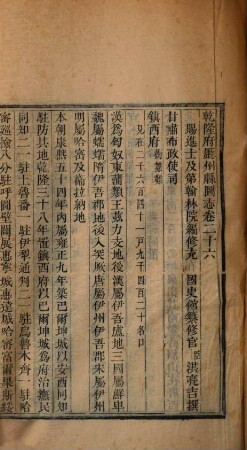 乾隆府廳州縣圖志卷二十六
賜進士及第翰林院編修充　國史館纂修官臣洪亮吉撰
甘肅布政使司
鎮西府
見在二千六百四十一戶九千四百二十名口
漢為匈奴東蒲類王茲力支地後漢屬伊吾盧地三國屬鮮卑
魏屬蠕蠕隋伊吾郡地後入突厥唐屬伊州伊吾郡宋屬伊州
明屬哈密及衛拉納地
本朝康熙五十四年內屬雍正九年築巴爾坤城以安西同知
駐防其地乾隆三十八年置鎮西府以巴爾坤城為府治撫民
同知二一駐吐魯番一駐伊犁通判二一駐烏魯木齊一駐哈
密巡檢八分駐